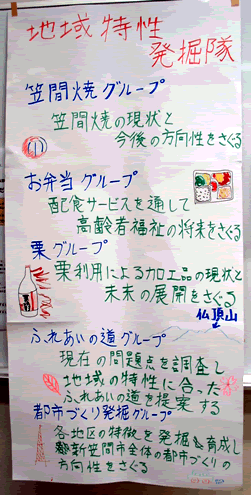 地域特性
発掘隊
笠間焼グループ
笠間焼の現状と
今後の方向性をさぐる
お弁当グループ
配食サービスを通して
高齢者福祉の将来をさぐる
栗グループ
栗利用による加工品の現状と
未来の展開をさぐる
仏頂山
ふれあいの道グループ
現在の問題点を調査し
地域の特性に合った
ふれあいの道を提案する
都市づくり発掘グループ
各地区の特徴を発掘し育成し
新笠間市全体の都市づくりの
方向性をさぐる